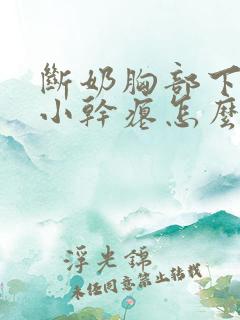 斷奶胸部下
小幹癟怎麼
浮光錦
未經同意禁止轉載